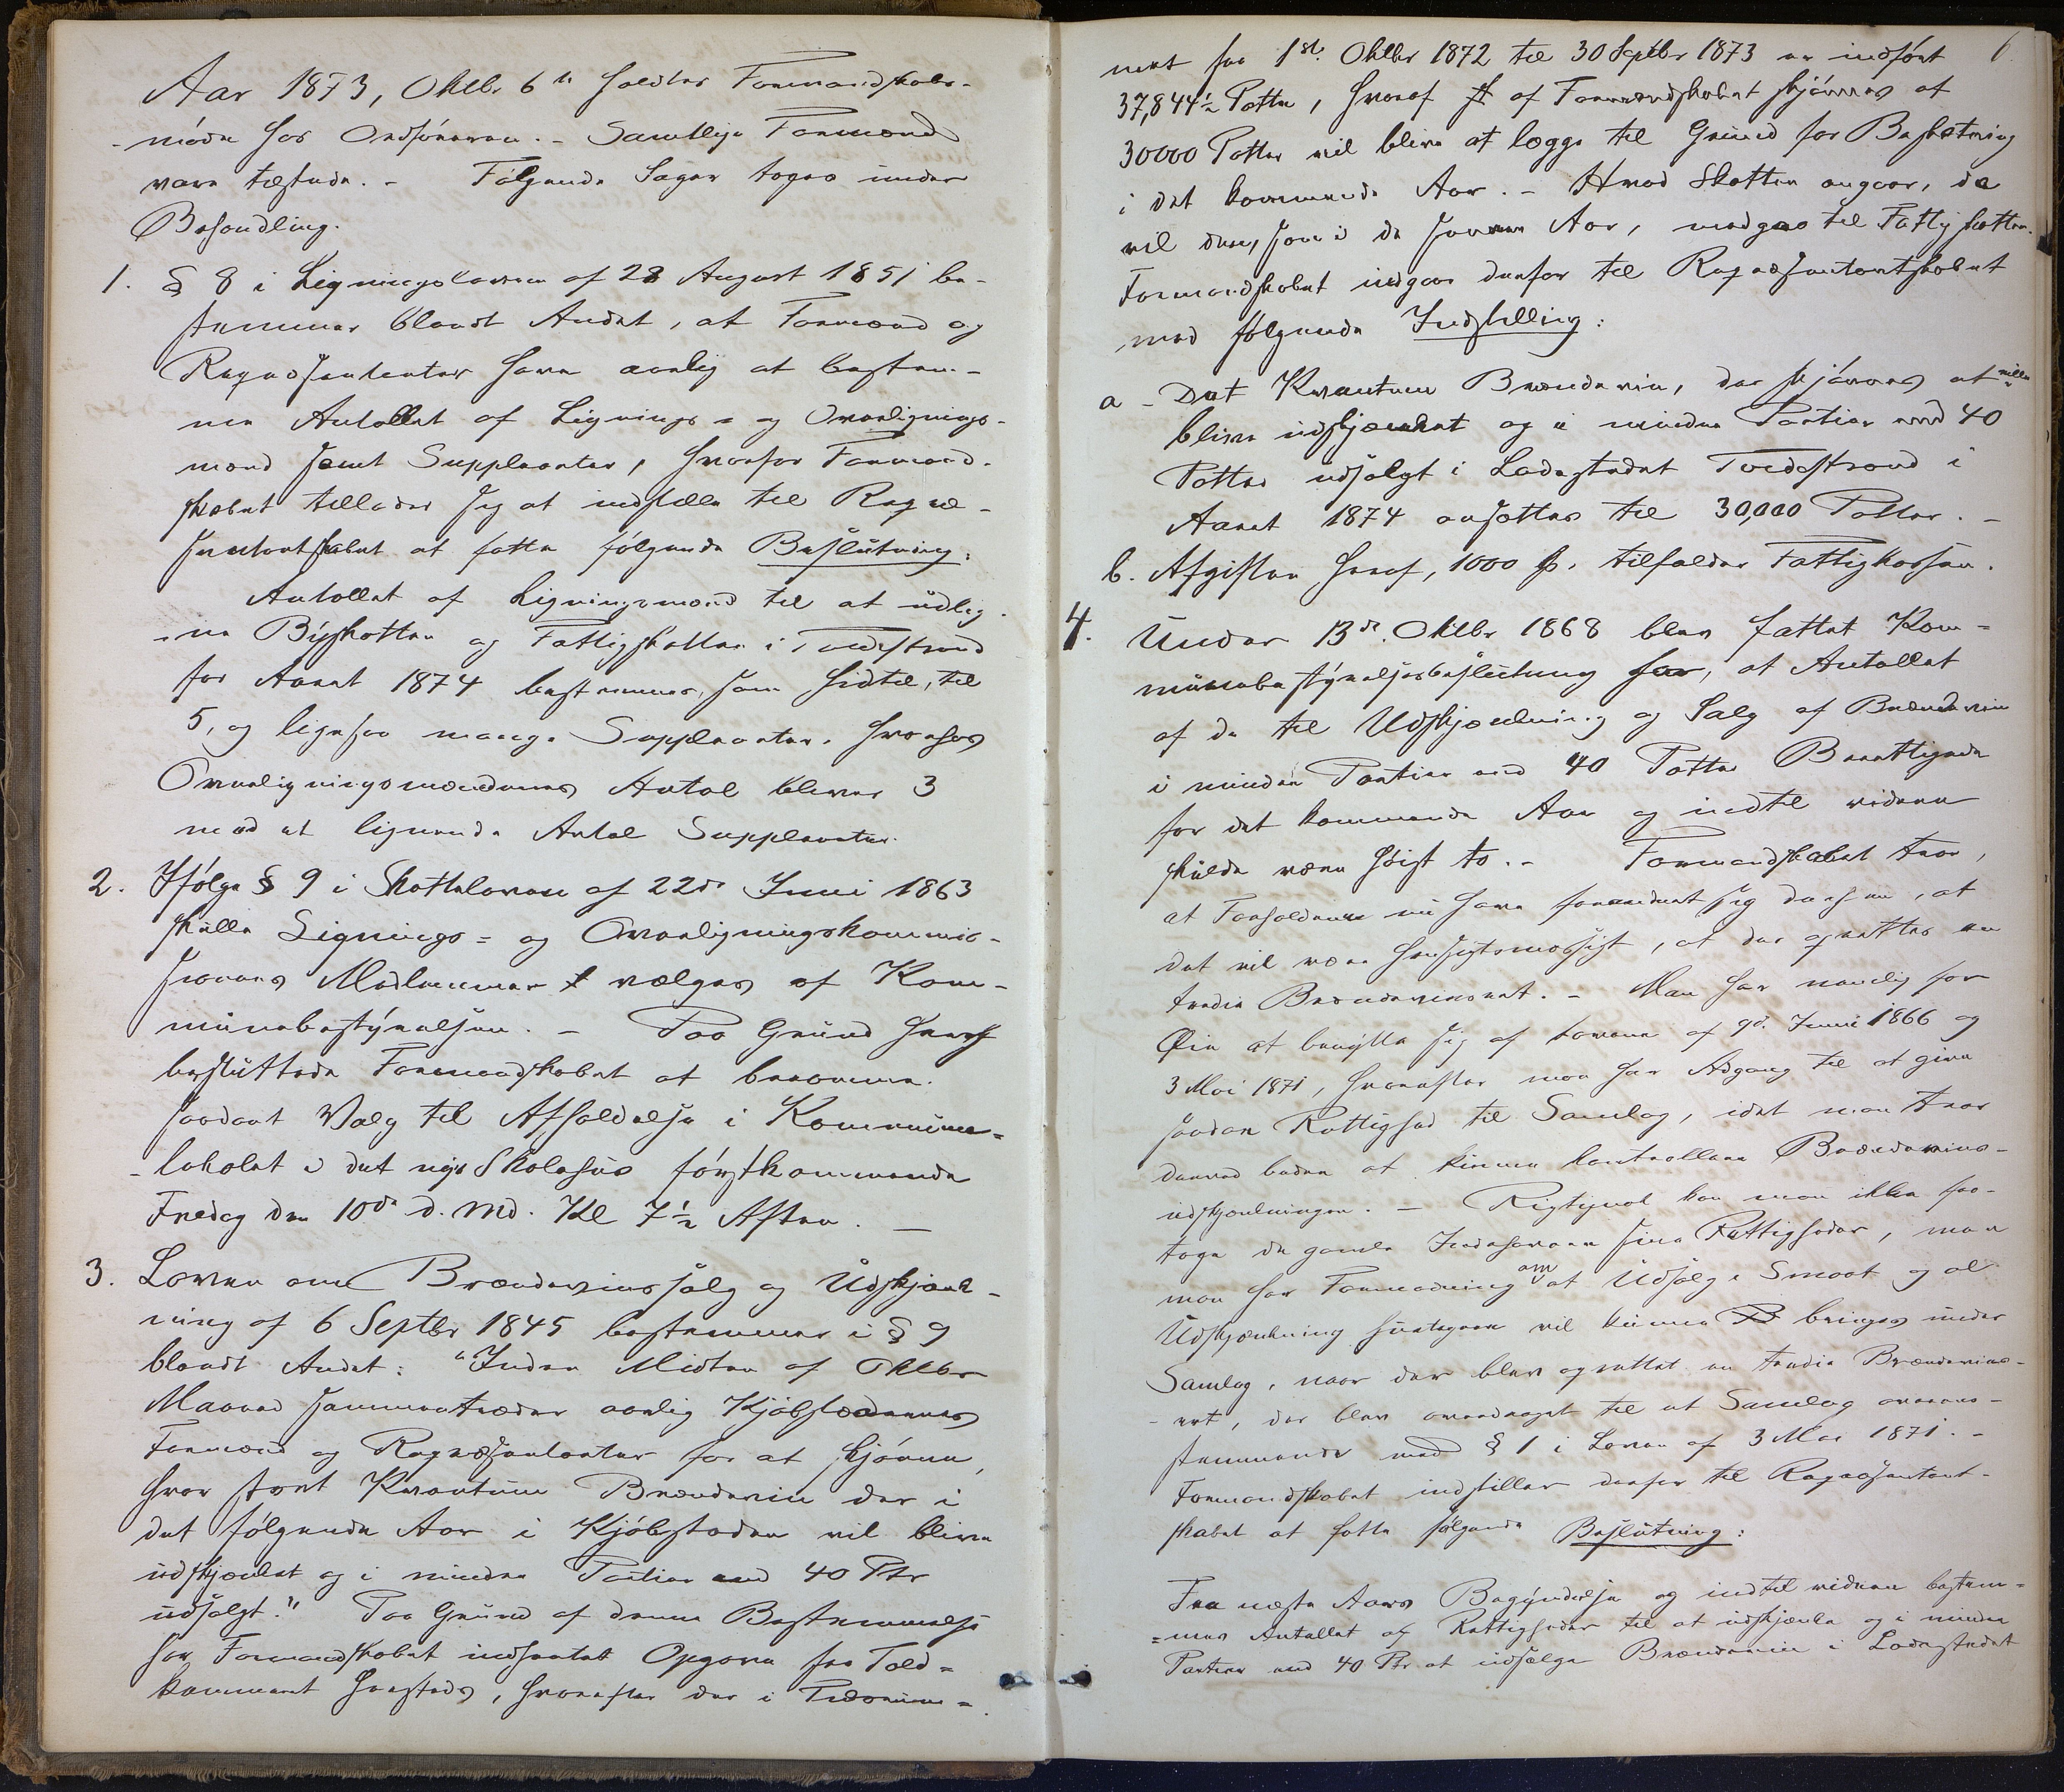 Aar 1873, Oktbr 6te holdtes Formandskabs-
-møde hos Ordføreren. - Samtlige Formænd
vare tilstede. - Følgende Sager toges under
Behandling.
1. § 8 i Ligningsloven af 28 August 1851 be-
stemmer blandt Andet, at Formænd og
Repræsentanter have aarlig at bestem-
me Antallet af Lignings- og Overlignings-
mænd samt Suppleanter, hvorfor Formand-
skabet tillader sig at indstille til Repræ-
sentantskabet at fatte følgende Beslutning:
Antallet af Ligningsmænd til at udlig-
-ne Byskatten og Fattigskatten i Tvedestrand
for Aaret 1874 bestemmes, som hidtil, til
5, og ligesaa mange Suppleanter, hvorhos
Overligningsmændenes Antal bliver 3
med et lignende Antal Suppleanter.
2. Ifølge § 9 i Skatteloven af 22de Juni 1863
skulle Lignings- og Overligningskommis-
sionens Medlemmer vælges af Kom-
munebestyrelsen. - Paa Grund heraf
besluttede Formandskabet at beramme
saadant Valg til Afholdelse i Kommune-
-lokalet i det nye Skolehus førstkommende
Fredag den 10de d. Md. Kl 7½ Aften. -
3. Loven om Brændeviinssalg og Udskjænk-
ning af 6 Septbr 1845 bestemmer i § 9
blandt Andet: "Inden Midten af Oktbr
Maaned sammentræder aarlig Kjøbstædernes
Formænd og Repræsentanter for at skjønne,
hvor stort Kvantum Brændeviin der i
det følgende Aar i Kjøbstaden vil blive
udskjænket og i mindre Partier end 40 Ptr
udsolgt." Paa Grund af denne Bestemmelse
har Formandskabet indhentet Opgave fra Told-
kammeret hersteds, hvorefter der i Tidsrum-
6.
met fra 1ste Oktbr 1872 til 30 Septbr 1873 er indført
37,844½ Potter, hvoraf af Formandskabet skjønnes at
30000 Potter vil blive at lægge til Grund for Beskatning
i det kommende Aar. - Hvad Skatten angaar, da
vil den, som i de senere Aar, medgaa til Fattigskatten.
Formandskabet indgaar derfor til Repræsentantskabet
med følgende Indstilling:
a - Det Kvantum Brændeviin, der skjønnes at ville
blive udskjænket og i mindre Partier end 40
Potter udsolgt i Ladestedet Tvedestrand i
Aaret 1874 ansættes til 30,000 Potter. -
b. Afgiften heraf, 1000 Sp. tilfalder Fattigkassen.
4. Under 13de Oktbr 1868 blev fattet Kom-
munebestyrelsesbeslutning for, at Antallet
af de til Udskjænkning og Salg af Brændeviin
i mindre Partier end 40 Potter Berettigede
for det kommende Aar og indtil videre
skulde være høist to. - Formandskabet tror,
at Forholdene nu have forandret sig derhen, at
det vil være hensigtsmæssigt, at der oprettes en
tredie Brændeviinsret. - Man har nemlig for
Øie at benytte sig af Lovene af 9de Juni 1866 og
3 Mai 1871, hvorefter man har Adgang til at give
saadan Rettighed til Samlag, idet man tror
derved bedre at kunne kontrollere Brændeviins-
udskjænkningen. - Rigtignok kan man ikke fra-
tage de gamle Indehavere sine Rettigheder, men
man har Formodning om at Udsalg i Smaat og al
Udskjænkning herefter vil kunne bringes under
Samlag, naar der blev oprettet en tredie Brændeviins-
-ret, der blev overdraget til et Samlag overens-
stemmende med § 1 i Loven af 3 Mai 1871. -
Formandskabet indstiller derfor til Repræsentant-
skabet at fatte følgende Beslutning:
Fra næste Aars Begyndelse og indtil videre bestem-
=mes Antallet af Rettigheder til at udskjænke og i mindre
Partier end 40 Ptr at udsælge Brændeviin i Ladestedet